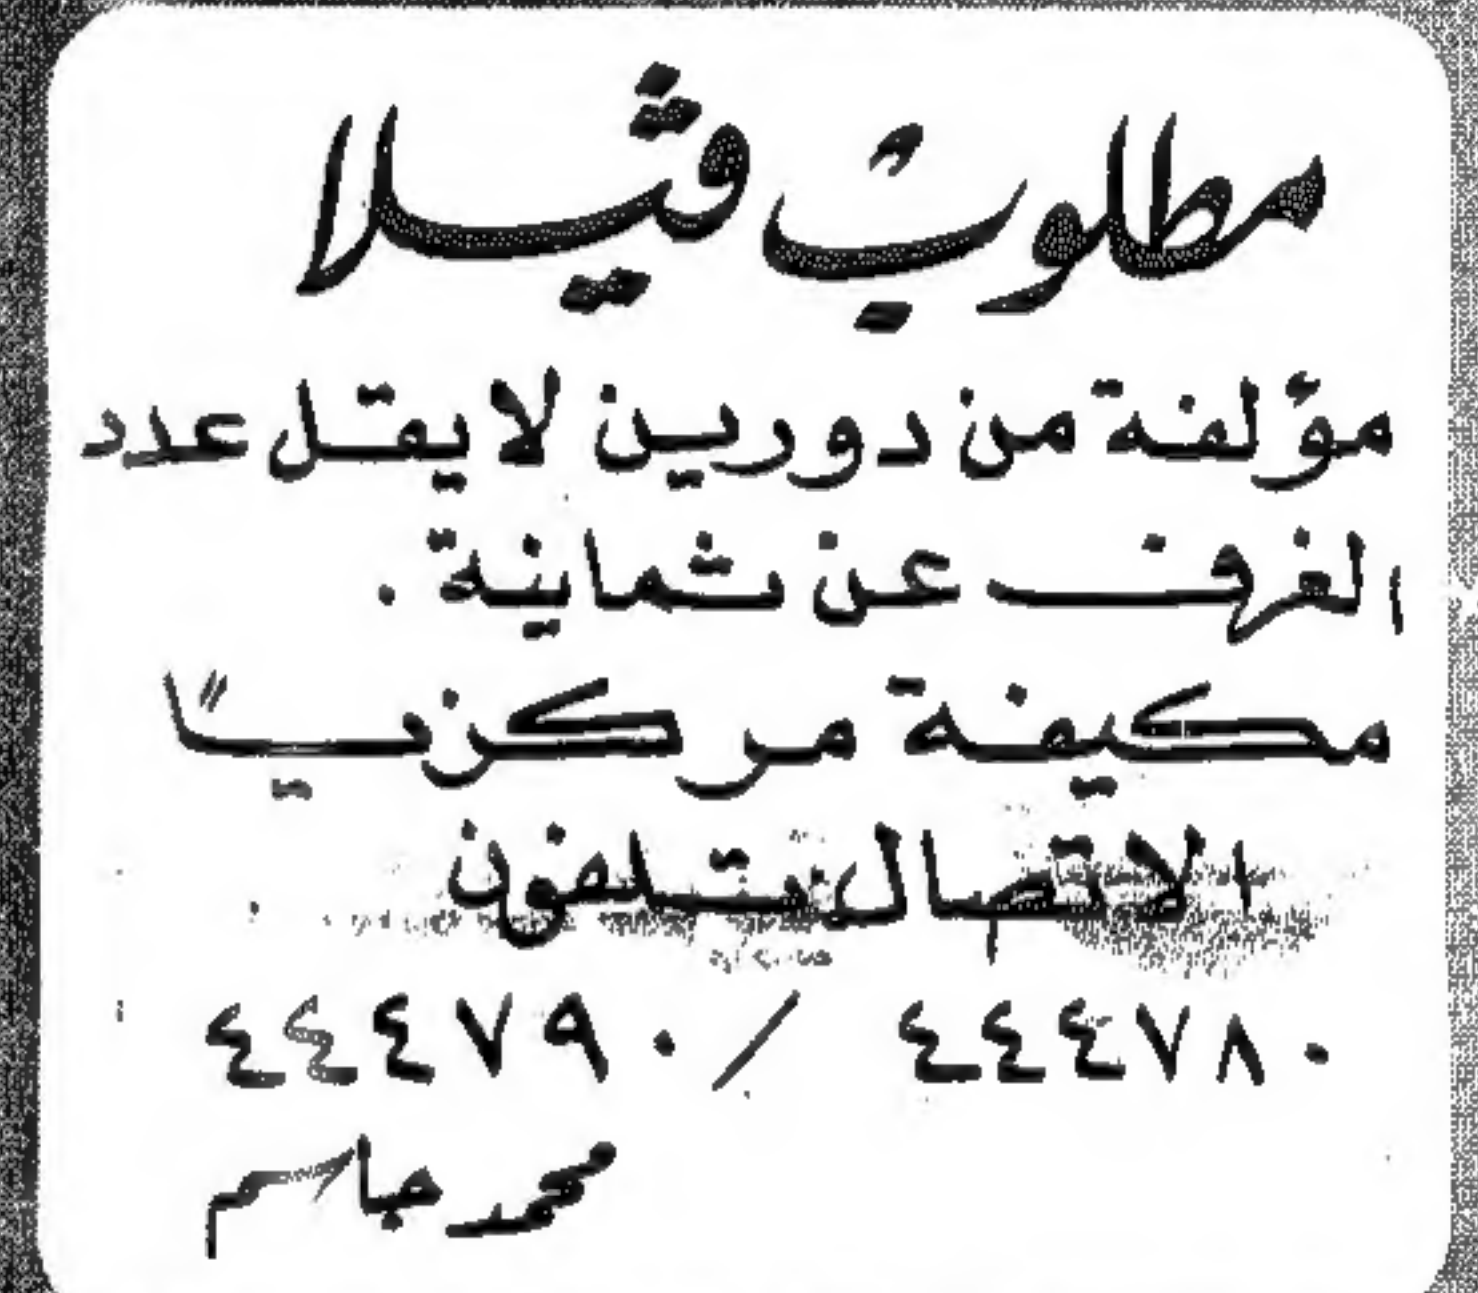 مطلوب ڤيلا
مؤلفة من دورين لا يقل عدد
الغرف عن ثمانية .
مكيفة مركزياً
الاتصال بتلفون
٤٤٤٧٨٠ / ٤٤٤٧٩٠
محمد جاسم